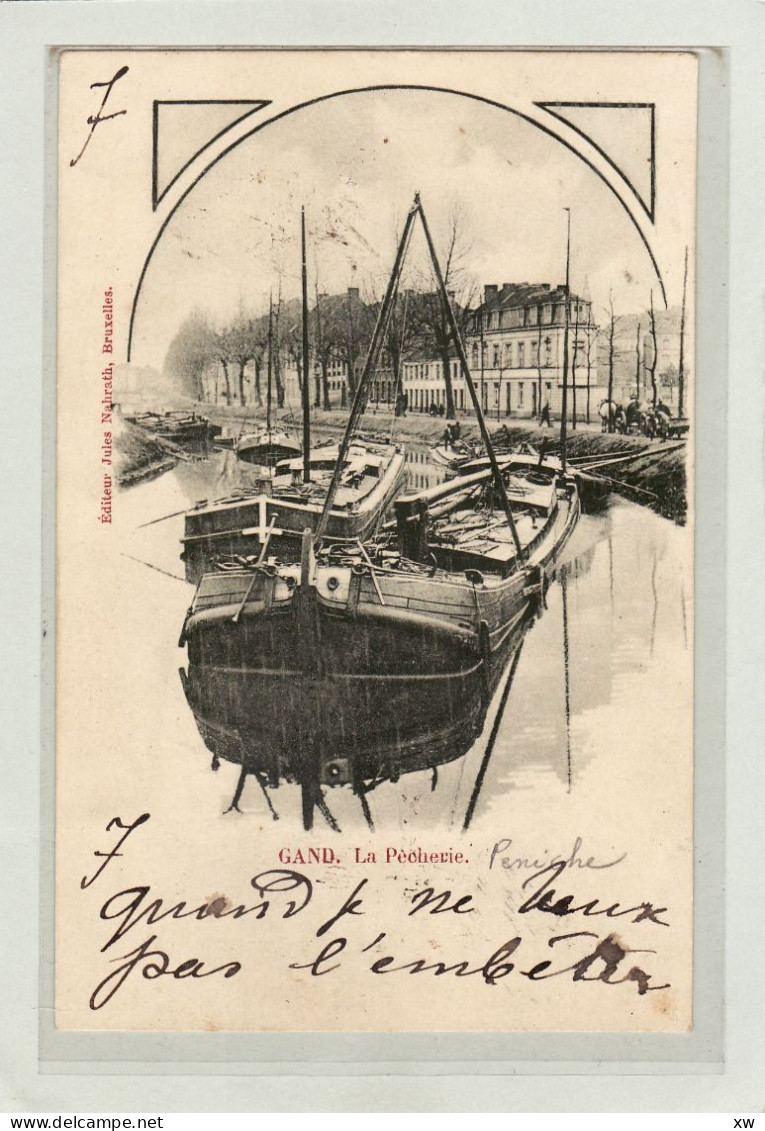 7
Éditeur Jules Nahrath, Bruxelles.
GAND. La Pêcherie.
Peniche
7
quand je ne veux
pas l'embêter
xw